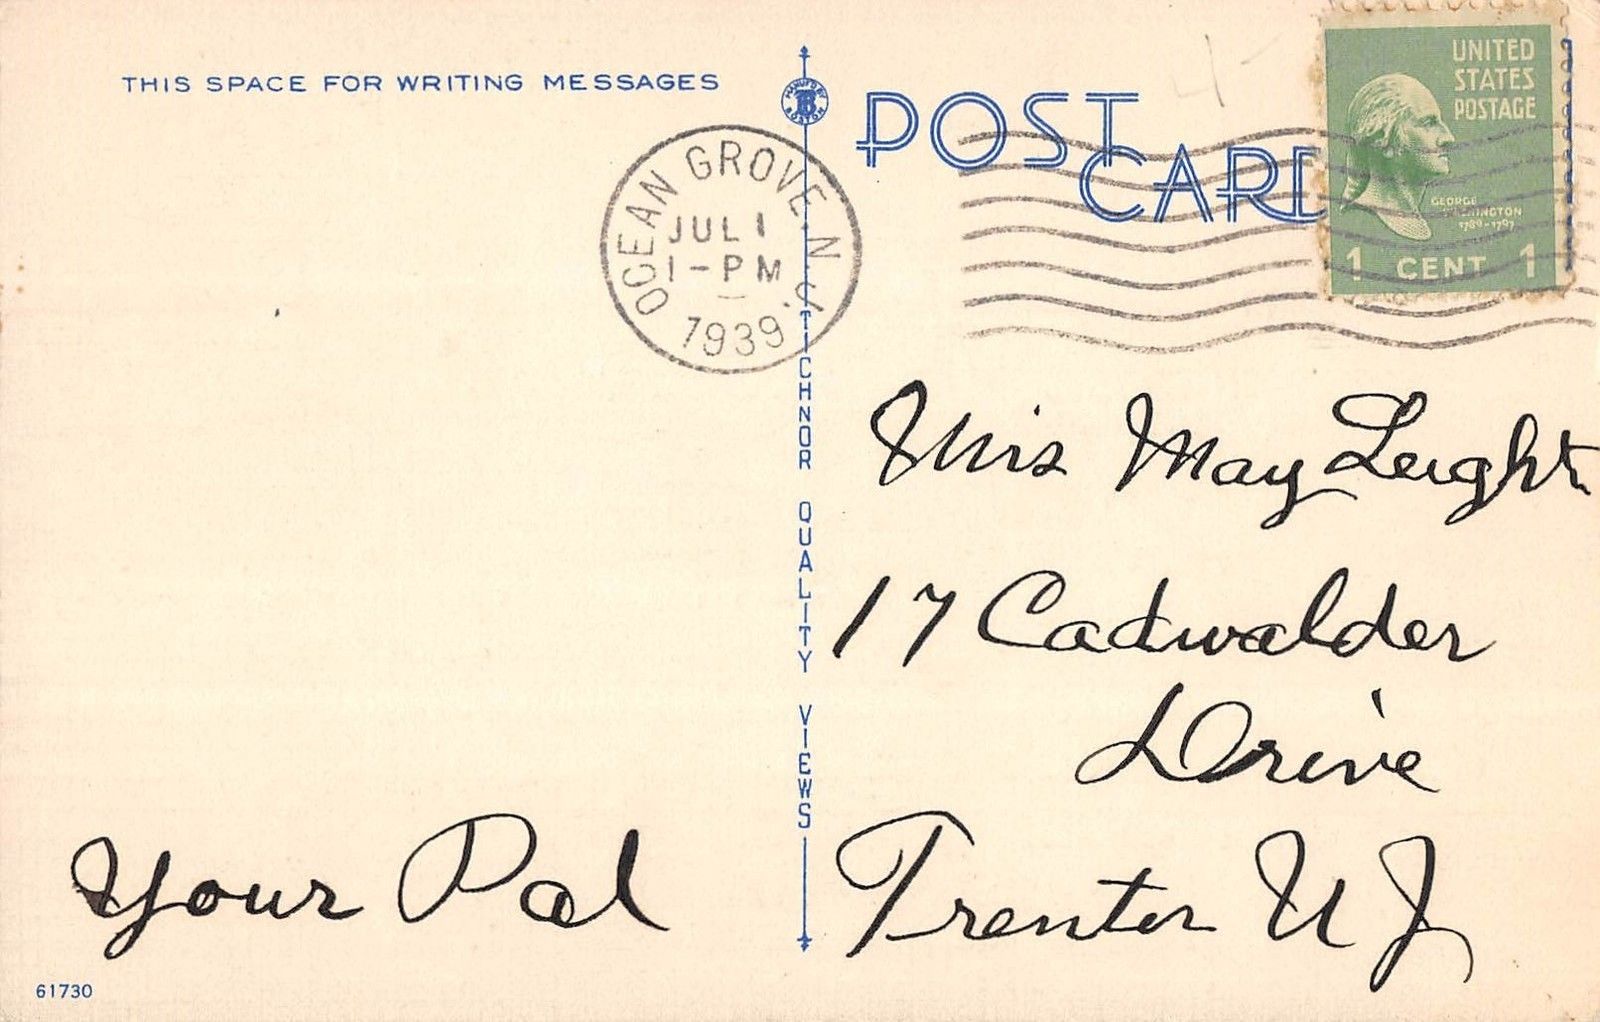 THIS SPACE FOR WRITING MESSAGES
MANUFD BY
TB
BOSTON
POST
CARD
UNITED
STATES
POSTAGE
GEORGE
WASHINGTON
1789-1797
1 CENT 1
OCEAN GROVE. N.J.
JUL 1
1-PM
1939
TICHNOR QUALITY VIEWS
Miss May Leight
17 Cadwalder
Drive
Trenton N J
Your Pal
61730